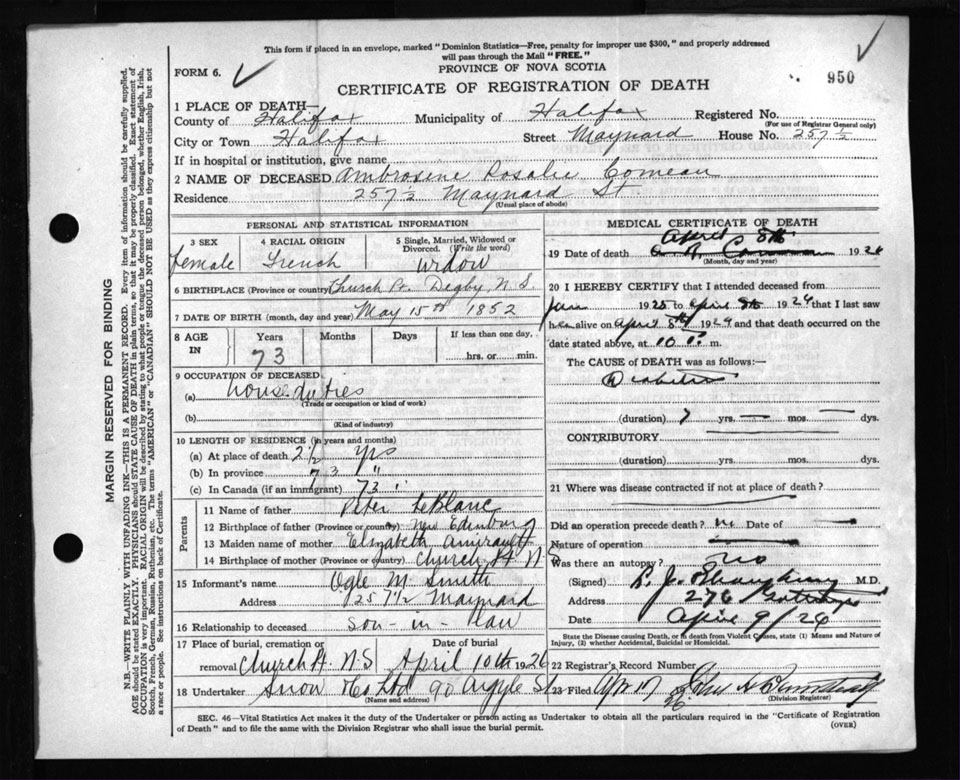 This form if placed in an envelope, marked "Dominion Statistics—Free, penalty for improper use $300," and properly addressed
will pass through the Mail "FREE."
PROVINCE OF NOVA SCOTIA
FORM 6.
950
CERTIFICATE OF REGISTRATION OF DEATH
1 PLACE OF DEATH—
County of Halifax Municipality of Halifax Registered No.
(For use of Registrar General only)
City or Town Halifax Street Maynard House No. 257½
If in hospital or institution, give name
2 NAME OF DECEASED Ambrosine Rosalie Comeau
Residence 257½ Maynard St.
(Usual place of abode)
PERSONAL AND STATISTICAL INFORMATION
3 SEX 4 RACIAL ORIGIN 5 Single, Married, Widowed or
Divorced. (Write the word)
female French widow
6 BIRTHPLACE (Province or country) Church Pt. Digby, N.S.
7 DATE OF BIRTH (month, day and year) May 15th 1852
8 AGE IN Years Months Days If less than one day,
73 hrs. or min.
9 OCCUPATION OF DECEASED
(a) house duties
(Trade or occupation or kind of work)
(b)
(Kind of industry)
10 LENGTH OF RESIDENCE (in years and months)
(a) At place of death 2½ yrs
(b) In province 73 "
(c) In Canada (if an immigrant) 73 "
Parents
11 Name of father Peter LeBlanc
12 Birthplace of father (Province or country) New Edinburg
13 Maiden name of mother Elizabeth Amirault
14 Birthplace of mother (Province or country) Church Pt N S
15 Informant's name Ogle M. Smith
Address 257½ Maynard
16 Relationship to deceased son-in-law
17 Place of burial, cremation or Date of burial
removal Church Pt. N.S April 10th 1926
18 Undertaker Snow & Co Ltd 90 Argyle St
(Name and address)
MEDICAL CERTIFICATE OF DEATH
April 8th
19 Date of death 1926
(Month, day and year)
20 I HEREBY CERTIFY that I attended deceased from
Jan 1925 to April 8th 1926 that I last saw
her alive on April 8th 1926 and that death occurred on the
date stated above, at 10 m.
The CAUSE of DEATH was as follows:—
Diabetes
(duration) yrs. — mos. — dys.
CONTRIBUTORY
(duration) yrs. mos. dys.
21 Where was disease contracted if not at place of death?
Did an operation precede death? no Date of —
Nature of operation —
Was there an autopsy? no
(Signed) M.D.
Address 276 Gottingen
Date April 9/26
State the Disease causing Death, or in death from Violent Causes, state (1) Means and Nature of
Injury, (2) whether Accidental, Suicidal or Homicidal.
22 Registrar's Record Number
23 Filed Apr 17 26 John
(Division Registrar)
SEC. 46—Vital Statistics Act makes it the duty of the Undertaker or person acting as Undertaker to obtain all the particulars required in the "Certificate of Registration
of Death" and to file the same with the Division Registrar who shall issue the burial permit.
(OVER)
MARGIN RESERVED FOR BINDING
N.B.—WRITE PLAINLY WITH UNFADING INK—THIS IS A PERMANENT RECORD. Every item of information should be carefully supplied.
AGE should be stated EXACTLY. PHYSICIANS should STATE CAUSE OF DEATH in plain terms, so that it may be properly classified. Exact statement of
OCCUPATION is very important. RACIAL ORIGIN will be described by stating to what people or tongue the deceased person belonged, whether English, Irish,
Scotch, French, German, Russian, Ruthenian, etc. The terms "AMERICAN" or "CANADIAN" SHOULD NOT BE USED as they express citizenship but not
a race or people. See instructions on back of Certificate.